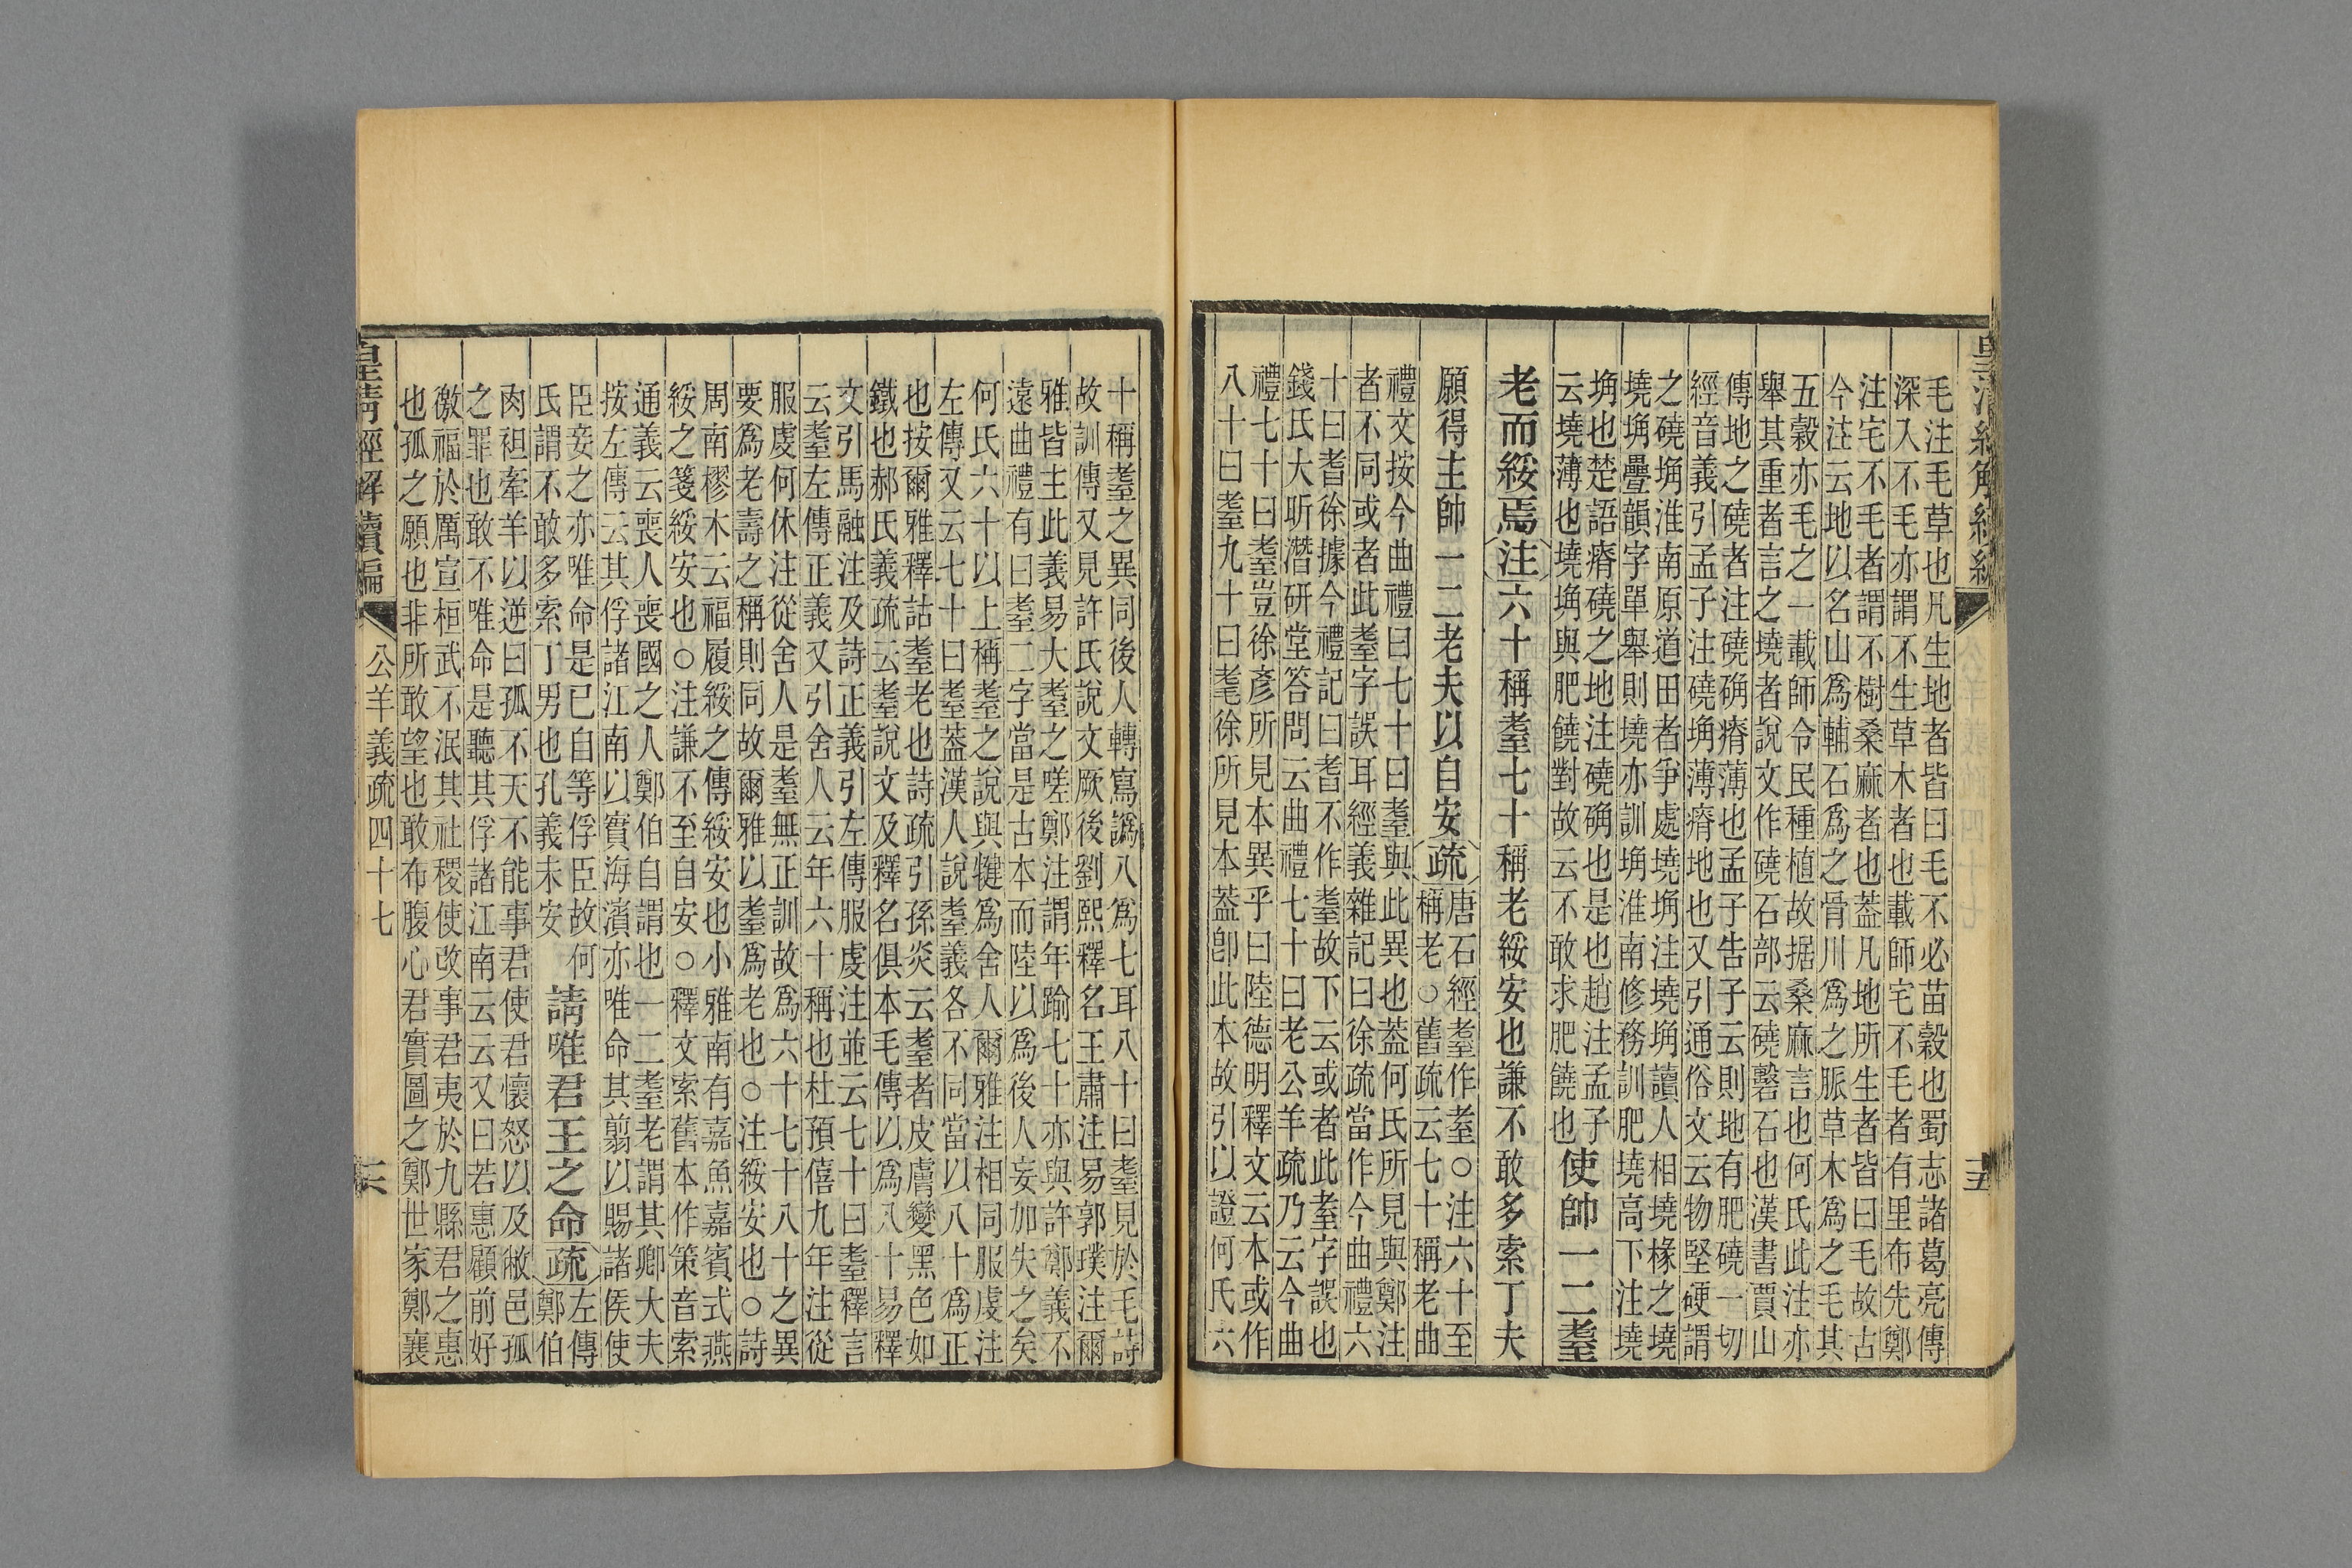 毛注毛草也凡生地者皆曰毛不必苗穀也蜀志諸葛亮傳
深入不毛亦謂不生草木者也載師宅不毛者有里布先鄭
注宅不毛者謂不樹桑麻者也蓋凡地所生者皆曰毛故古
今注云地以名山爲輔石爲之骨川爲之脈草木爲之毛其
五穀亦毛之一載師令民種植故据桑麻言也何氏此注亦
舉其重者言之墝者說文作磽石部云磽磬石也漢書賈山
傳地之磽者注磽确瘠薄也孟子告子云則地有肥磽一切
經音義引孟子注磽埆薄瘠地也又引通俗文云物堅硬謂
之磽埆淮南原道田者爭處墝埆注墝埆讀人相墝椽之墝
墝埆疊韻字單舉則墝亦訓埆淮南修務訓肥墝高下注墝
埆也楚語瘠磽之地注磽确也是也趙注孟子
云墝薄也墝埆與肥饒對故云不敢求肥饒也
使帥一二耋
老而綏焉注六十稱耋七十稱老綏安也謙不敢多索丁夫
願得主帥一二老夫以自安疏
唐石經耋作耊○注六十至
稱老○舊疏云七十稱老曲
禮文按今曲禮曰七十曰耋與此異也蓋何氏所見與鄭注
者不同或者此耋字誤耳經義雜記曰徐疏當作今曲禮六
十曰耆徐據今禮記曰耆不作耋故下云或者此耊字誤也
錢氏大昕潛研堂答問云曲禮七十曰老公羊疏乃云今曲
禮七十曰耋豈徐彥所見本異乎曰陸德明釋文云本或作
八十曰耋九十曰耄徐所見本蓋卽此本故引以證何氏六
十稱耋之異同後人轉寫譌八爲七耳八十曰耋見於毛詩
故訓傳又見許氏說文厥後劉熙釋名王肅注易郭璞注爾
雅皆主此義易大耋之嗟鄭注謂年踰七十亦與許鄭義不
遠曲禮有曰耋二字當是古本而陸以爲後人妄加失之矣
何氏六十以上稱耋之說與犍爲舍人爾雅注相同服虔注
左傳又云七十曰耋蓋漢人說耋義各不同當以八十爲正
也按爾雅釋詁耋老也詩疏引孫炎云耋者皮膚變黑色如
鐵也郝氏義疏云耋說文及釋名俱本毛傳以爲八十易釋
文引馬融注及詩正義引左傳服虔注並云七十曰耋釋言
云耋左傳正義又引舍人云年六十稱也杜預僖九年注從
服虔何休注從舍人是耋無正訓故爲六十七十八十之異
要爲老壽之稱則同故爾雅以耋爲老也○注綏安也○詩
周南樛木云福履綏之傳綏安也小雅南有嘉魚嘉賓式燕
綏之箋綏安也○注謙不至自安○釋文索舊本作策音索
通義云喪人喪國之人鄭伯自謂也一二耋老謂其卿大夫
按左傳云其俘諸江南以實海濱亦唯命其翦以賜諸侯使
臣妾之亦唯命是已自等俘臣故何
氏謂不敢多索丁男也孔義未安
請唯君王之命疏
左傳
鄭伯
肉袒牽羊以逆曰孤不天不能事君使君懷怒以及敝邑孤
之罪也敢不唯命是聽其俘諸江南云云又曰若惠顧前好
徼福於厲宣桓武不泯其社稷使改事君夷於九縣君之惠
也孤之願也非所敢望也敢布腹心君實圖之鄭世家鄭襄
皇清經解續編 公羊義疏四十七